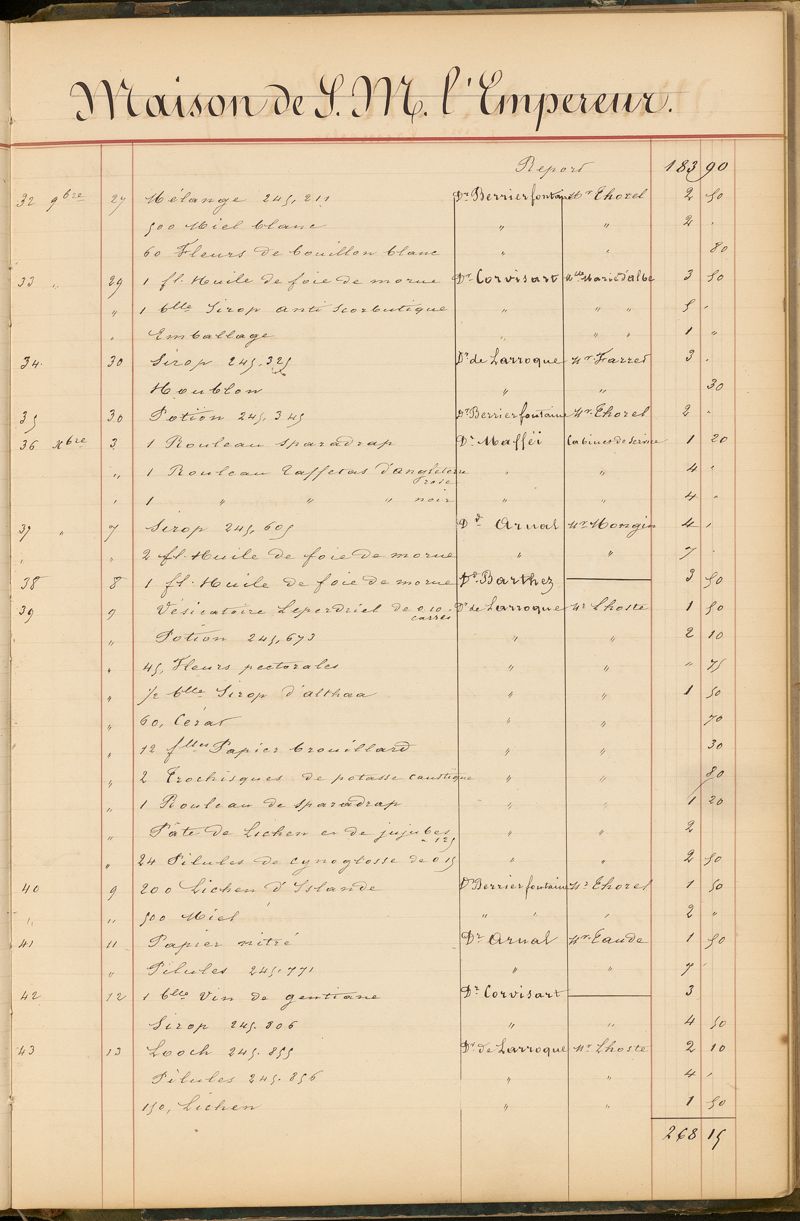 Maison de S. M. l'Empereur.
Report 183 90
32 9bre 27 Mélange 245,211 Dr Berrierfontaine Mr Thorel 2 50
500 Miel blanc " " 2 .
60 Fleurs de bouillon blanc " " 80
33 " 29 1 fl. Huile de foie de morue Dr Corvisart Mlle Marie d'albe 3 50
" 1 blle Sirop antiscorbutique " " " 5 .
" Emballage " " 1 "
34 30 Sirop 245.325 Dr de Larroque Mr Farret 3 .
Houblon " " 30
35 30 Potion 245.345 Dr Berrierfontaine Mr Thorel 2 "
36 Xbre 3 1 Rouleau sparadrap Dr Maffëi Cabinet de service 1 20
" 1 Rouleau Taffetas d'angleterre rose " " 4 "
" 1 " " " noir " " 4 "
37 " 7 Sirop 245,605 Dr Arnal Mr Mongin 4 "
" " 2 fl. Huile de foie de morue " " 7 .
38 8 1 fl. Huile de foie de morue Dr Barthez 3 50
39 9 Vésicatoire Leperdriel de 0.10 carrés Dr de Larroque Mr Lhoste 1 50
" Potion 245,673 " " 2 10
" 45, Fleurs pectorales " " " 75
" 1/2 blle Sirop d'althaa " " 1 50
" 60, Cérat " " 70
" 12 flles Papier brouillard " " 30
" 2 Trochisques de potasse caustique " " 80
" 1 Rouleau de sparadrap " " 1 20
" Pâte de Lichen et de jujubes a 125 " " 2
" 24 Pilules de cynoglosse de 0.15 " " 2 50
40 9 200 Lichen d'Islande Dr Berrierfontaine Mr Thorel 1 50
" " 500 Miel " " " 2 "
41 11 Papier nitré Dr Arnal Mr Eaude 1 50
" Pilules 245.771 " " 7 "
42 12 1 blle Vin de gentiane Dr Corvisart 3
Sirop 245.806 " " 4 50
43 13 Looch 245.855 Dr de Larroque Mr Lhoste 2 10
Pilules 245.856 " " 4 "
150, Lichen " " 1 50
268 15